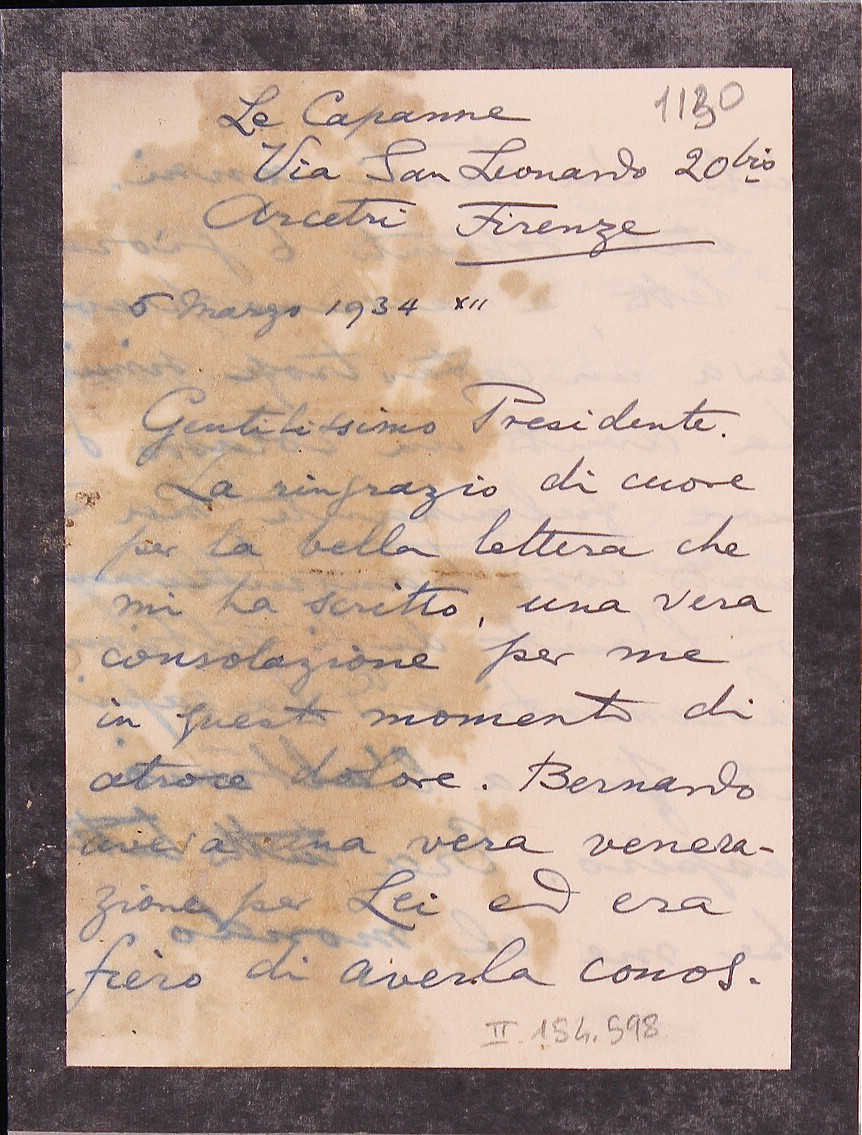 1130
Le Capanne
Via San Leonardo 20bis
Arcetri Firenze
5 Marzo 1934 XII
Gentilissimo Presidente.
La ringrazio di cuore
per la bella lettera che
mi ha scritto, una vera
consolazione per me
in questo momento di
atroce dolore. Bernardo
aveva una vera venera-
zione per Lei ed era
fiero di averla conos-
II. 154. 598